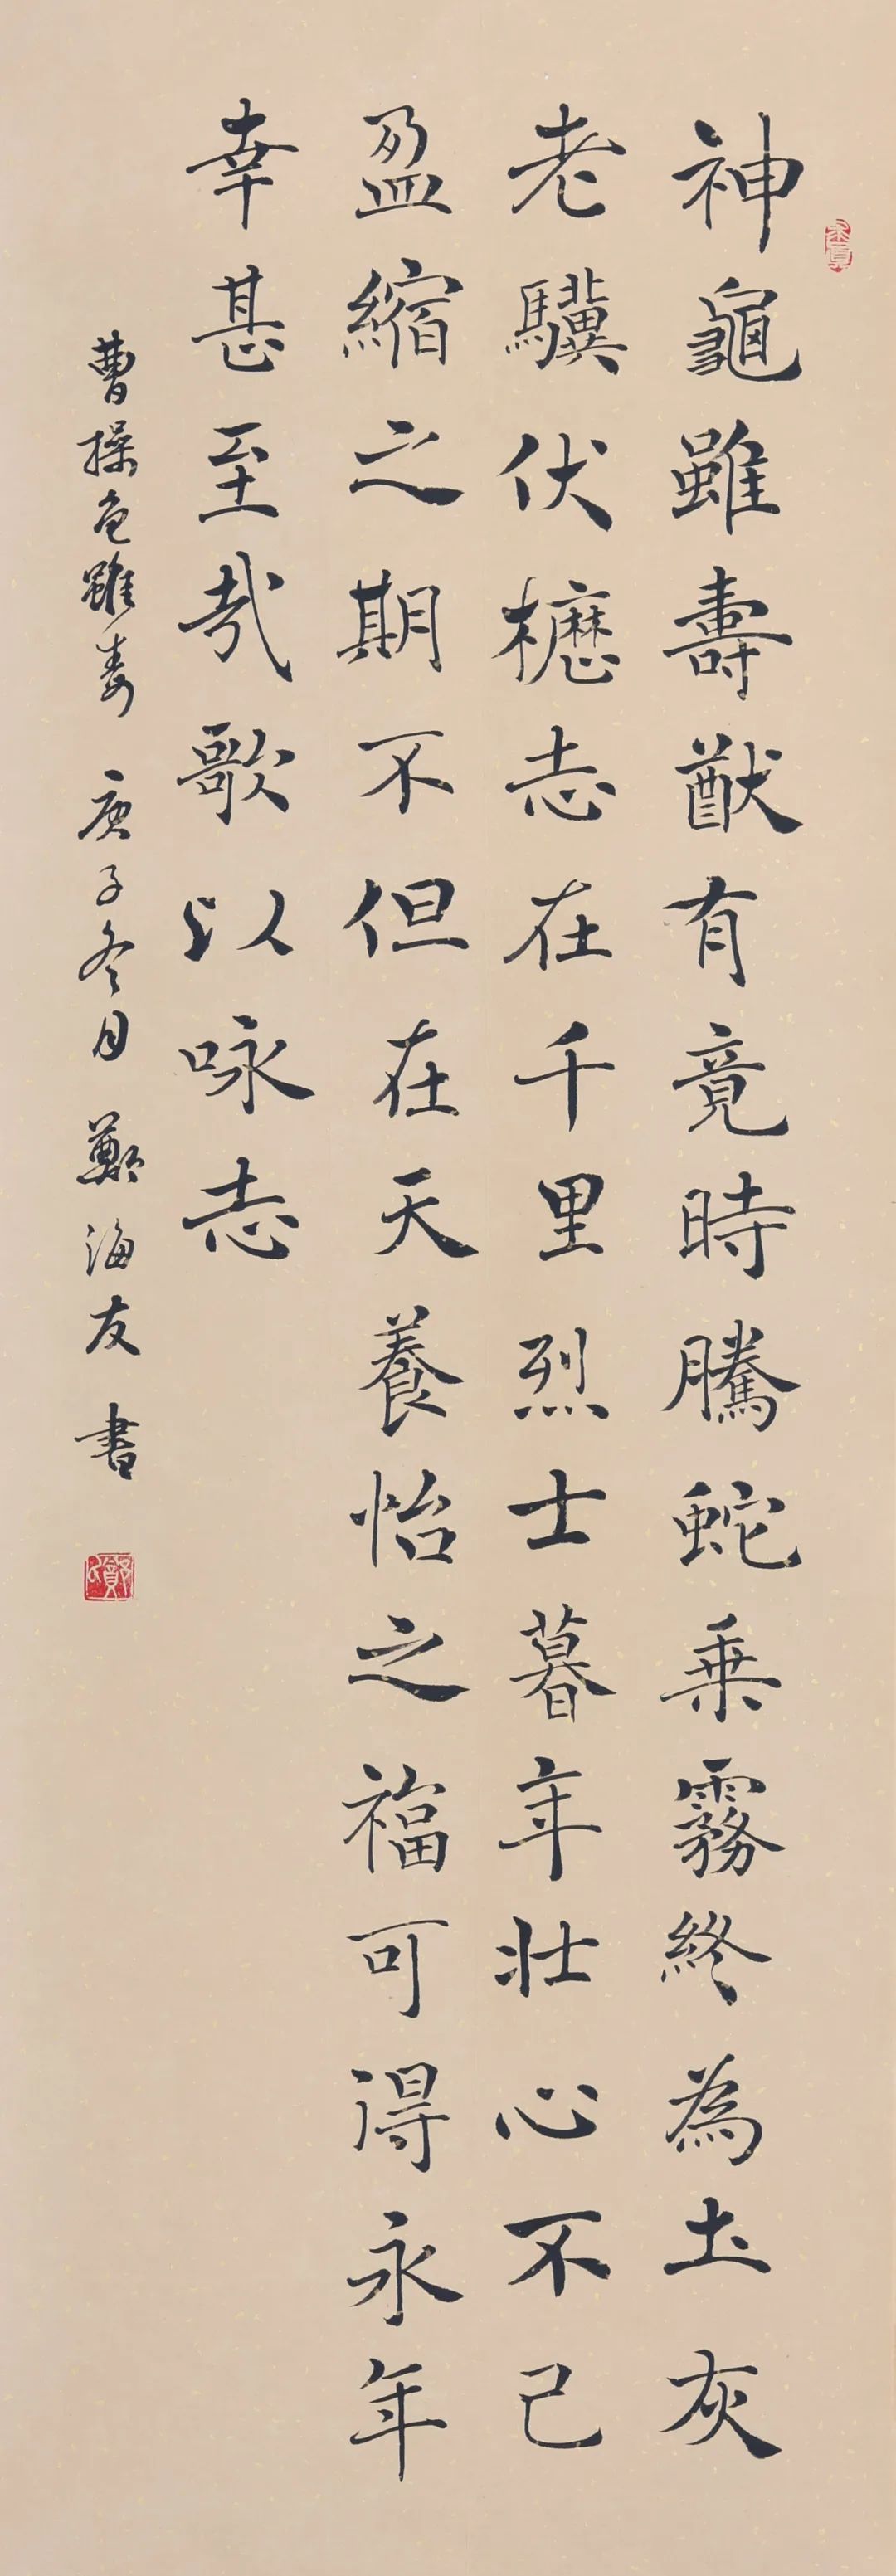 神龜雖壽猷有竟時騰蛇乗霧終為土灰
老驥伏櫪志在千里烈士暮年壯心不已
盈縮之期不但在天養怡之福可得永年
幸甚至哉歌以咏志
曹操龜雖壽 庚子冬月 鄭海友 書